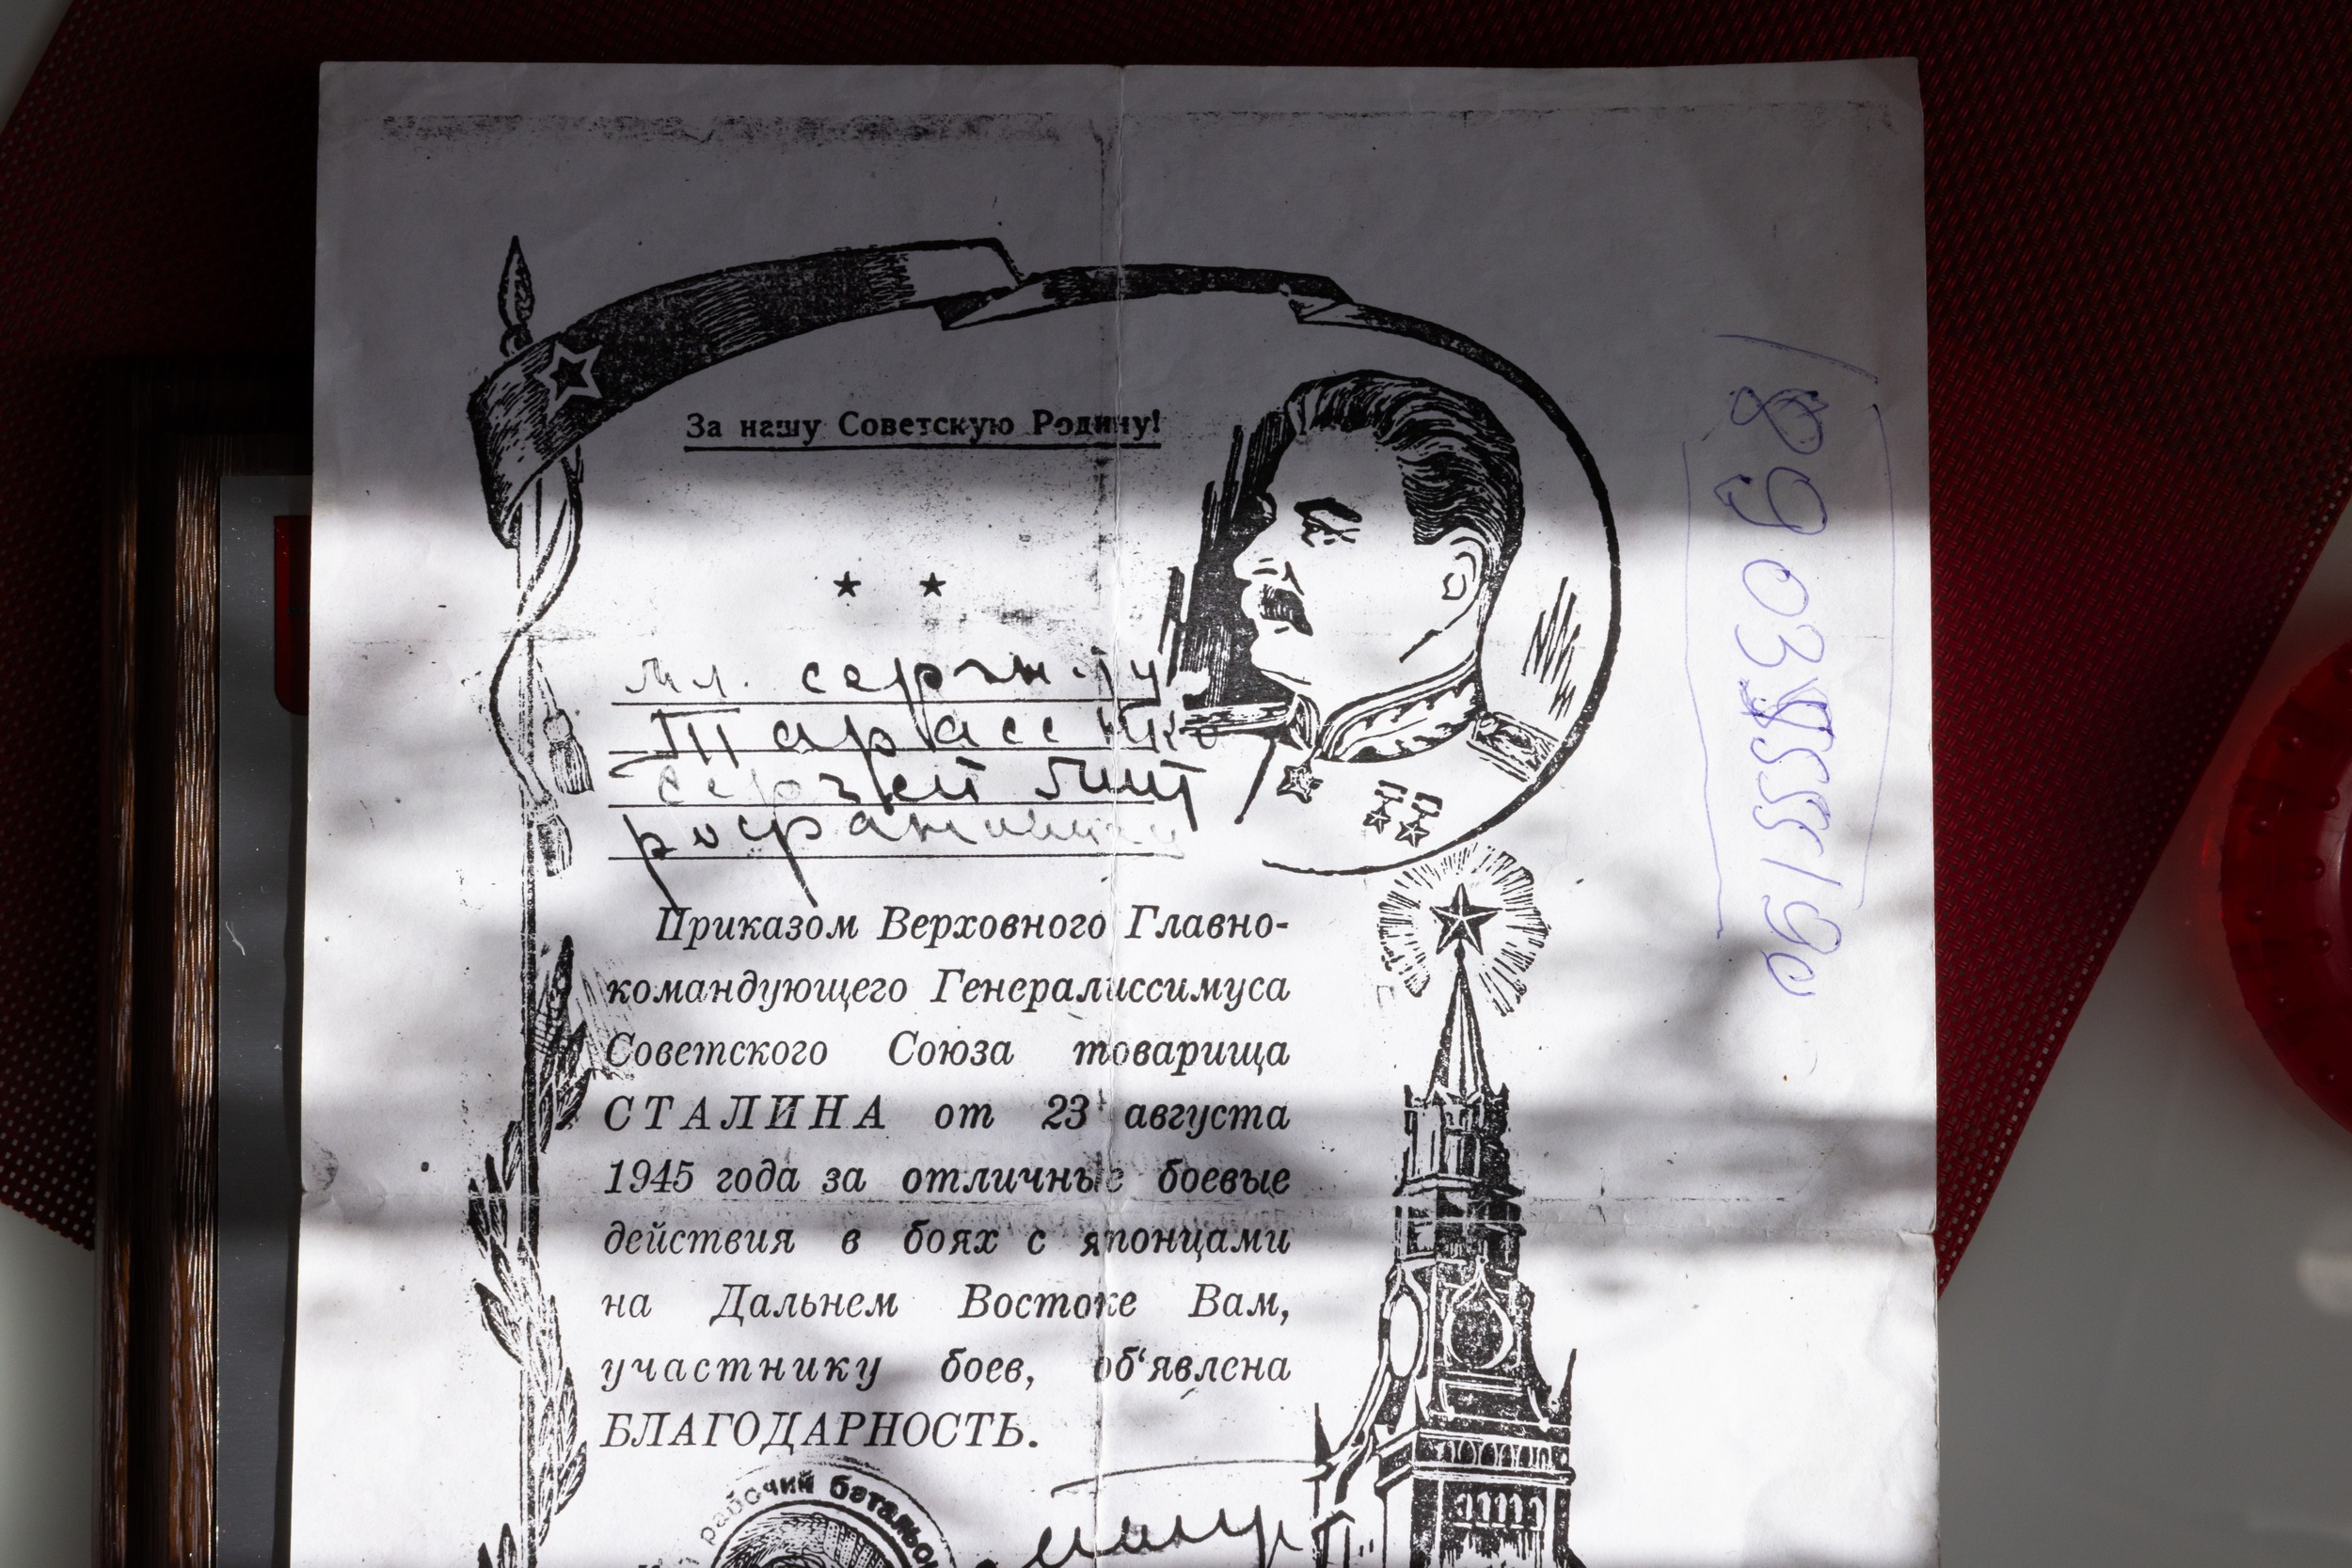 За нашу Советскую Родину!
мл. сержн-ту
Тарасенко
Сергей
Приказом Верховного Главно-
командующего Генералиссимуса
Советского Союза товарища
СТАЛИНА от 23 августа
1945 года за отличные боевые
действия в боях с японцами
на Дальнем Востоке Вам,
участнику боев, об‘явлена
БЛАГОДАРНОСТЬ.
рабочий батальон